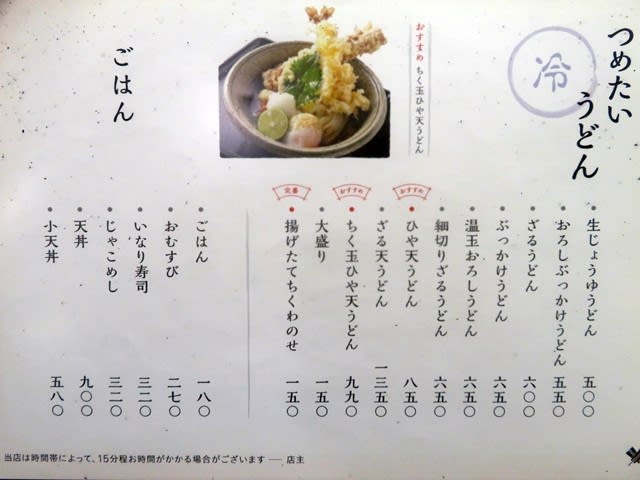 つめたい
うどん
冷
おすすめ ちく玉ひや天うどん
生じょうゆうどん 五〇〇
おろしぶっかけうどん 五五〇
ざるうどん 六〇〇
ぶっかけうどん 六五〇
温玉おろしうどん 六五〇
細切りざるうどん 六五〇
おすすめ
ひや天うどん 八五〇
ざる天うどん 一三五〇
おすすめ
ちく玉ひや天うどん 九九〇
大盛り 一五〇
定番
揚げたてちくわのせ 一五〇
ごはん
ごはん 一八〇
おむすび 二七〇
いなり寿司 三二〇
じゃこめし 三二〇
天丼 九〇〇
小天丼 五八〇
当店は時間帯によって、15分程お時間がかかる場合がございます ── 店主